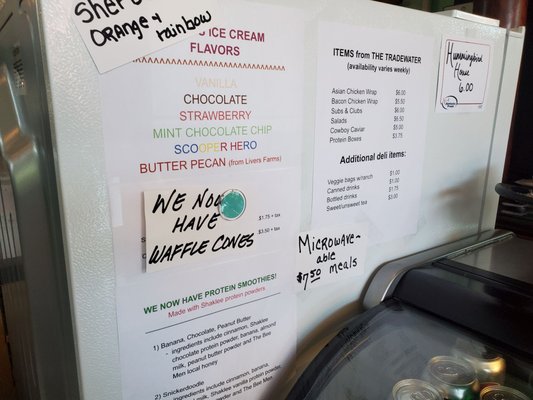 Orange + rainbow
ICE CREAM
FLAVORS
VANILLA
CHOCOLATE
STRAWBERRY
MINT CHOCOLATE CHIP
SCOOPER HERO
BUTTER PECAN (from Livers Farms)
WE NOW
HAVE
WAFFLE CONES
$1.75 + tax
$3.50 + tax
WE NOW HAVE PROTEIN SMOOTHIES!
Made with Shaklee protein powders
1) Banana, Chocolate, Peanut Butter
- ingredients include cinnamon, Shaklee
chocolate protein powder, banana, almond
milk, peanut butter powder and The Bee
Men local honey
2) Snickerdoodle
- ingredients include cinnamon, banana,
Shaklee vanilla protein powder,
milk, and The Bee
ITEMS from THE TRADEWATER
(availability varies weekly)
Asian Chicken Wrap $6.00
Bacon Chicken Wrap $5.50
Subs & Clubs $6.00
Salads $6.50
Cowboy Caviar $5.00
Protein Boxes $3.75
Additional deli items:
Veggie bags w/ranch $1.00
Canned drinks $1.00
Bottled drinks $1.75
Sweet/unsweet tea $3.00
MICROWAVE-
able
$7.50 meals
Hummingbird
House
6.00